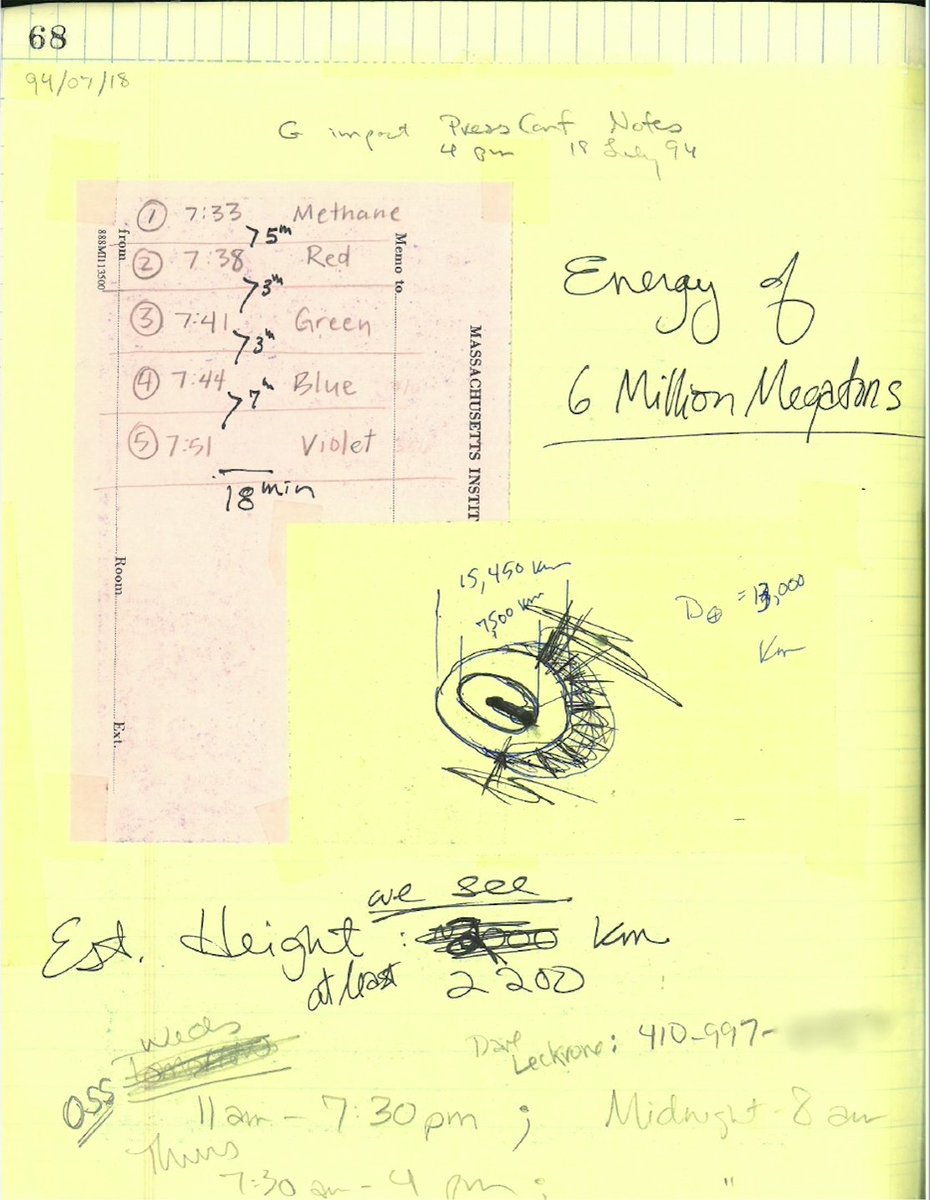 68
94/07/18
G impact Press Conf Notes
4 pm 18 July 94
① 7:33 Methane
> 5m
② 7:38 Red
> 3m
③ 7:41 Green
> 3m
④ 7:44 Blue
> 7m
⑤ 7:51 Violet
18 min
from
888MI113500
Memo to
MASSACHUSETTS INSTIT
Room
Ext.
Energy of
6 Million Megatons
15,450 km
7500 km
D⊕ = 13,000
Km
we see
Est. Height : 2000 km
at least 2200
Dave Leckrone: 410-997-
Weds
Tomorrow
OSS
11am - 7:30pm ; Midnight - 8 am
Thurs
7:30 am - 4 pm ; "